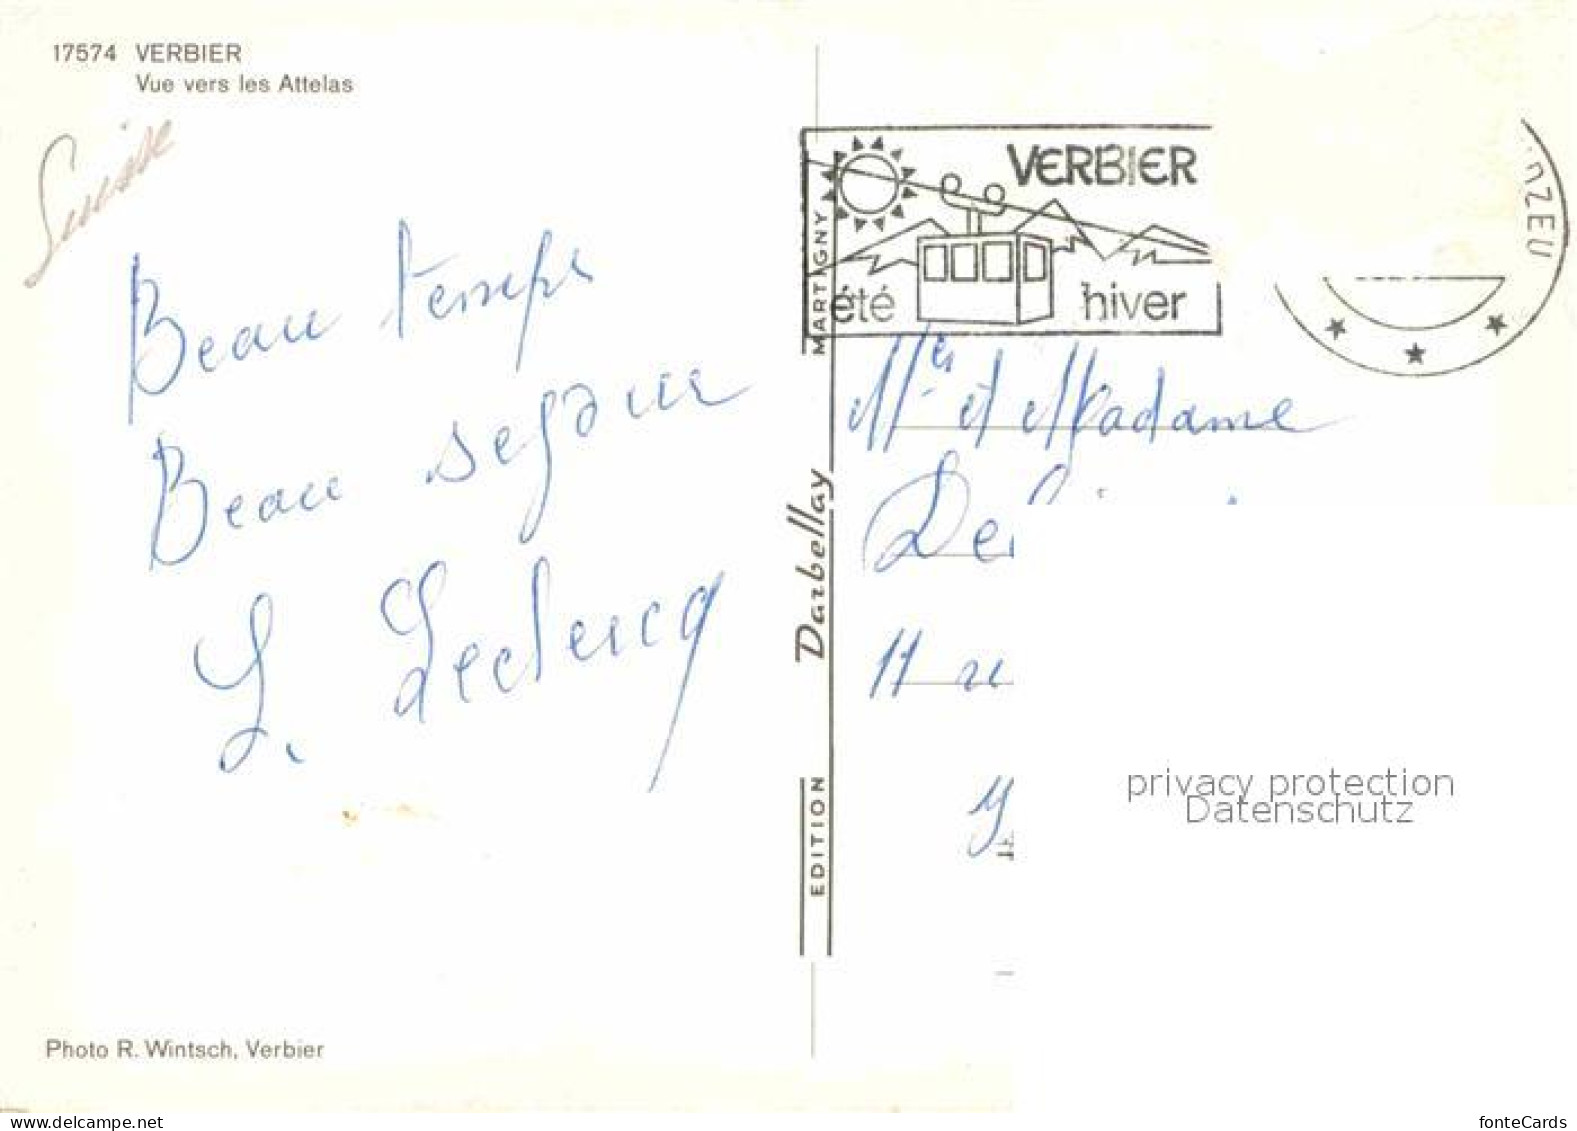 17574 VERBIER
Vue vers les Attelas
Suisse
Beau temps
Beau sejour
L. Leclercq
Photo R. Wintsch, Verbier
EDITION Darbellay MARTIGNY
VERBIER
été hiver
Mr et Madame
11 ru
privacy protection
Datenschutz
www.delcampe.net
fonteCards